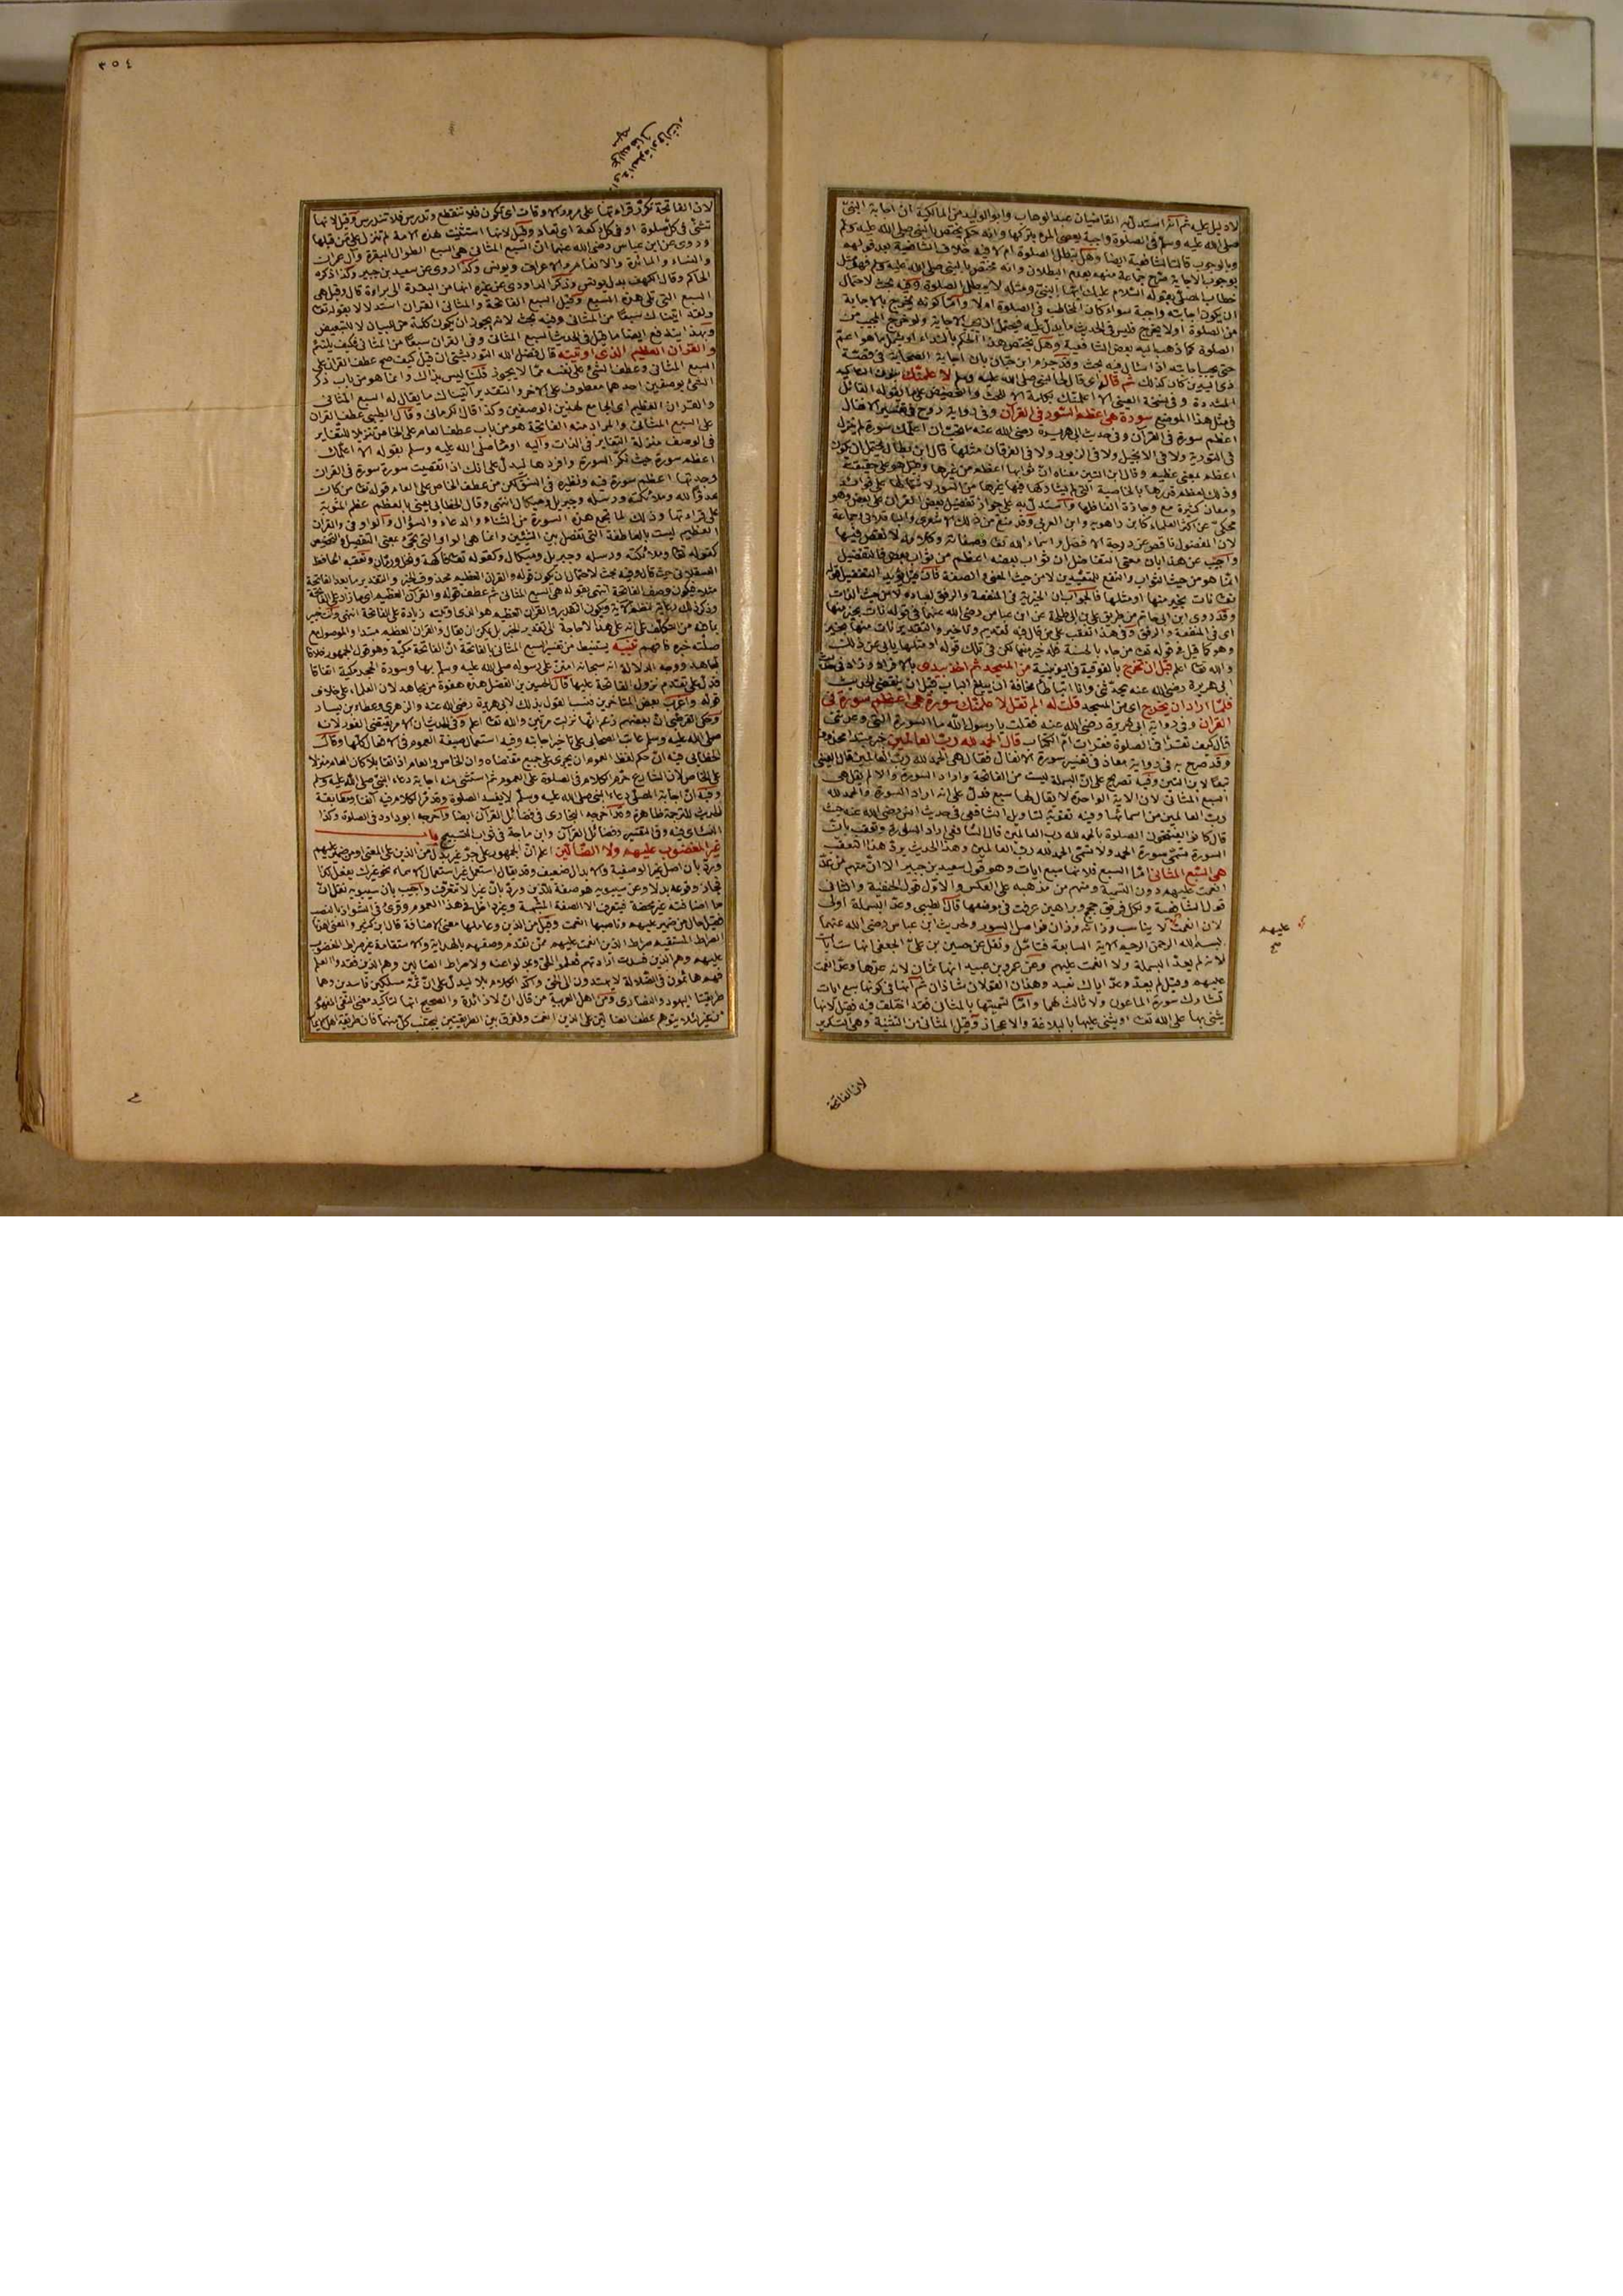 لا دليل عليه ثم انه استدل به القاضيان عبد الوهاب وابو الوليد من المالكية ان اجابة النبي
صلى الله عليه وسلم في الصلوة واجبة يعصى المرء بتركها وانه حكم يختص بالنبي صلى الله عليه وسلم
وبالوجوب قالت الشافعية ايضا وهل تبطل الصلوة ام لا فيه خلاف الشافعية بعد قولهم
بوجوب الاجابة صرح جماعة منهم بعدم البطلان وانه مختص بالنبي صلى الله عليه وسلم فهو مثل
خطاب المصلي بقوله السلام عليك ايها النبي ومثله لا يبطل الصلوة وفيه بحث لاحتمال
ان يكون اجابته واجبة سواء كان المخاطب في الصلوة اولا واما كونه يخرج بالاجابة
من الصلوة اولا يخرج فليس في الحديث ما يدل عليه فيحتمل ان تجب الاجابة ولو خرج المجيب من
الصلوة كما ذهب اليه بعض الشافعية وهل يختص هذا الحكم بالنداء او يشمل ما هو اعم
حتى يجب اجابته اذا سأل فيه بحث وقد جزم ابن حبان بان اجابة الصحابة في قصة
ذي اليدين كان كذلك ثم قال اي قال لها النبي صلى الله عليه وسلم لاعلمنك بنون التاكيد
المشددة وفي نسخة العيني الا اعلمنك بكلمة الا للحث والتحضيض على القوله القائل
في مثل هذا الموضع سورة هي اعظم السور في القرآن وفي رواية روح في تفسير الانفال
اعظم سورة في القرآن وفي حديث ابي هريرة رضي الله عنه اتحب ان اعلمك سورة لم ينزل
في التورية ولا في الانجيل ولا في الزبور ولا في الفرقان مثلها قال ابن بطال يحتمل ان يكون
اعظم بمعنى عظيم وقال ابن التين معناه ان ثوابها اعظم من غيرها وقيل هو على حقيقته
ومعان كثيرة مع وجازة الفاظها واستدل به على جواز تفضيل بعض القرآن على بعض وهو
محكي عن اكثر العلماء كابن راهويه وابن العربي وقد منع من ذلك الاشعري والباقلاني وجماعة
لان المفضول ناقص عن درجة الافضل واسماء الله تعا وصفاته وكلامه لا نقص فيها
واجيب عن هذا بان معنى التفاضل ان ثواب بعضه اعظم من ثواب بعض فالتفضيل
انما هو من حيث الثواب والنفع للمتعبدين لا من حيث المعنى والصفة
تعا نأت بخير منها او مثلها فالجواب ان الخيرية في المنفعة والرفق لعباده لا من حيث الذات
وقد روى ابن ابي حاتم من طريق علي بن ابي طلحة عن ابن عباس رضي الله عنهما في قوله نأت بخير منها
اي في المنفعة والرفق وفي هذا تعقب على من قال فيه تقديم وتاخير والتقدير نأت منها بخير
وهو كما قيل في قوله تعا من جاء بالحسنة فله خير منها لكن في تلك قوله او مثلها يأبى عن ذلك
والله تعا اعلم قبل ان تخرج بالفوقية في اليونينية من المسجد ثم اخذ بيدي بالافراد
ابي هريرة رضي الله عنه يحدثني وانا اتباطأ مخافة ان يبلغ الباب قبل ان ينقضي الحديث
فلما اراد ان يخرج اي من المسجد قلت له الم تقل لاعلمنك سورة هي اعظم سورة في
القرآن وفي رواية ابي هريرة رضي الله عنه فقلت يا رسول الله ما السورة التي وعدتني
قال كيف تقرأ في الصلوة فقرأت ام الكتاب قال الحمد لله رب العالمين خبر مبتدأ محذوف
وقد صرح به في رواية معاذ في تفسير سورة الانفال فقال هي الحمد لله رب العالمين
تبعا لابن التين وفيه تصريح على ان البسملة ليست من الفاتحة واراد السورة والا لم يقل هي
السبع المثاني لان الاية الواحدة لا يقال لها سبع فدل على انه اراد السورة والحمد لله
رب العالمين من اسمائها وفيه تقوية لتأويل الشافعي في حديث انس رضي الله عنه حيث
قال كانوا يفتتحون الصلوة بالحمد لله رب العالمين قال الشافعي اراد السورة وتعقب بان
السورة تسمى سورة الحمد ولا تسمى الحمد لله رب العالمين وهذا الحديث يرد هذا التعقب
هي السبع المثاني اما السبع فلانها سبع ايات وهو قول سعيد بن جبير الا ان منهم من عد
انعمت عليهم دون التسمية ومنهم من مذهبه على العكس والاول قول الحنفية والثاني
قول الشافعية ولكل فريق حجج وبراهين عرفت في موضعها قال الطيبي وعد البسملة اولى
لان انعمت لا يناسب وزانه وزان فواصل السور ولحديث ابن عباس رضي الله عنهما
بسم الله الرحمن الرحيم الاية السابعة فتأمل ونقل عن حسين بن علي الجعفي انها ست آيات
لانه لم يعد البسملة ولا انعمت عليهم وعن عمرو بن عبيد انها ثمان لانه عدها وعد انعمت
عليهم وقيل لم يعد وعد اياك نعبد وهذان القولان شاذان ثم انها في كونها سبع ايات
تشارك سورة الماعون ولا ثالث لهما واما تسميتها بالمثاني فقد اختلف فيه فقيل لانها
يثنى بها على الله تعا او يثنى عليها بالبلاغة والاعجاز وقيل المثاني من التثنية وهي التكرير
عليهم
صح
لان الفاتحة
٣٥٤
لان الفاتحة تكرر قراءتها على مرور الاوقات اي تكون فلا تنقطع وتدرس فلا تندرس وقيل لانها
تثنى في كل صلوة او في كل ركعة اي تعاد وقيل لانها استثنيت لهذه الامة لم تنزل على من قبلها
وروى عن ابن عباس رضي الله عنهما ان السبع المثاني هي السبع الطوال البقرة وآل عمران
والنساء والمائدة والانعام والاعراف ويونس وكذا روى عن سعيد بن جبير وكذا ذكره
الحاكم وقال الكهف بدل يونس وذكر الداودي عن غيره انها من البقرة الى براءة قال وقيل هي
السبع التي تلي هذه السبع وقيل السبع الفاتحة والمثاني القرآن استدلالا بقوله تعا
ولقد اتيناك سبعا من المثاني وفيه بحث لانه يجوز ان يكون كلمة من للبيان لا للتبعيض
وبهذا يندفع ايضا ما قيل في الحديث السبع المثاني وفي القرآن سبعا من المثاني فكيف يلتئم
والقرآن العظيم الذي اوتيته قال فضل الله التوربشتي ان قيل كيف صح عطف القرآن على
السبع المثاني وعطف الشئ على نفسه مما لا يجوز قلت ليس بذاك وانما هو من باب ذكر
الشئ بوصفين احدهما معطوف على الاخر والتقدير آتيناك ما يقال له السبع المثاني
والقرآن العظيم اي الجامع لهذين الوصفين وكذا قال الكرماني وقال الطيبي عطف القرآن
على السبع المثاني والمراد منه الفاتحة هو من باب عطف العام على الخاص تنزيلا للتغاير
في الوصف منزلة التغاير في الذات واليه اومأ صلى الله عليه وسلم بقوله الا اعلمك
اعظم سورة حيث نكر السورة وافردها ليدل على انك ان تقصيت سورة سورة في القرآن
وجدتها اعظم سورة فيه ونظيره في النسق لكن من عطف الخاص على العام قوله تعا من كان
عدوا لله وملائكته ورسله وجبريل وميكال انتهى وقال الخطابي يعني بالعظم عظم المثوبة
على قراءتها وذلك لما تجمع هذه السورة من الثناء والدعاء والسؤال والواو في والقرآن
العظيم ليست بالعاطفة التي تفصل بين الشيئين وانما هي الواو التي تجئ بمعنى التفصيل والتخصيص
كقوله تعا وملائكته ورسله وجبريل وميكال وكقوله تعا فاكهة ونخل ورمان وتعقبه الحافظ
العسقلاني حيث قال وفيه بحث لاحتمال ان يكون قوله والقرآن العظيم محذوف الخبر والتقدير ما بعد الفاتحة
مثلا فيكون وصف الفاتحة انتهى بقوله هي السبع المثاني ثم عطف قوله والقرآن العظيم اي ما زاد على الفاتحة
وذكر ذلك رعاية لنظم الآية ويكون التقدير والقرآن العظيم هو الذي اوتيته زيادة على الفاتحة انتهى
صلته خبره فافهم تنبيه يستنبط من تفسير السبع المثاني بالفاتحة ان الفاتحة مكية وهو قول الجمهور خلافا
لمجاهد ووجه الدلالة انه سبحانه امتن على رسوله صلى الله عليه وسلم بها وسورة الحجر مكية اتفاقا
فدل على تقدم نزول الفاتحة عليها قال الحسين بن الفضل هذه هفوة من مجاهد لان العلماء على خلاف
قوله واغرب بعض المتأخرين فنسب القول بذلك لابي هريرة رضي الله عنه والزهري وعطاء بن يسار
وحكى القرطبي ان بعضهم زعم انها نزلت مرتين والله تعا اعلم وفي الحديث ان الامر يقتضي الفور لانه
صلى الله عليه وسلم عاتب الصحابي على تاخير اجابته وفيه استعمال صيغة العموم في الاحوال كلها وقال
الخطابي فيه ان حكم لفظ العموم ان يجرى على جميع مقتضاه وان الخاص والعام اذا تقابلا كان العام منزلا
على الخاص لان الشارع حرم الكلام في الصلوة على العموم ثم استثنى منه اجابة دعاء النبي صلى الله عليه وسلم
وفيه ان اجابة المصلي دعاء النبي صلى الله عليه وسلم لا يفسد الصلوة وقد مر الكلام فيه آنفا ومطابقة
الحديث للترجمة ظاهرة وقد اخرجه البخاري في فضائل القرآن ايضا واخرجه ابو داود في الصلوة وكذا
النسائي فيه وفي التفسير وفضائل القرآن وابن ماجة في ثواب التسبيح باب
غير المغضوب عليهم ولا الضالين اعلم ان الجمهور على جر غير بدل من الذين على المعنى او من ضمير عليهم
ورد بان اصل غير الوصفية والابدال ضعيف وقد يقال استعمل غير استعمال الاسماء نحو غيرك يفعل كذا
فجاز وقوعه بدلا وعن سيبويه هو صفة للذين ورد بان غيرا لا تتعرف واجيب بان سيبويه نقل ان
ما اضافته غير محضة فيتعرف الا الصفة المشبهة وغير داخل في هذا العموم وقرئ في الشواذ بالنصب
فقيل حال من ضمير عليهم وناصبها انعمت وقيل من الذين وعاملها معنى الاضافة قال ابن كثير والمعنى اهدنا
الصراط المستقيم صراط الذين انعمت عليهم ممن تقدم وصفهم بالهداية والاستقامة غير صراط المغضوب
عليهم وهم الذين فسدت ارادتهم فعلموا الحق وعدلوا عنه ولا صراط الضالين وهم الذين فقدوا العلم
فهم هائمون في الضلالة لا يهتدون الى الحق واكد الكلام بلا ليدل على ان ثمة مسلكين فاسدين وهما
طريقتا اليهود والنصارى ومن اهل العربية من قال ان لا زائدة والصحيح انها لتأكيد معنى النفي
من غير لئلا يتوهم عطف الضالين على الذين انعمت وللفرق بين الطريقتين ليجتنب كل منهما فان طريقة اهل